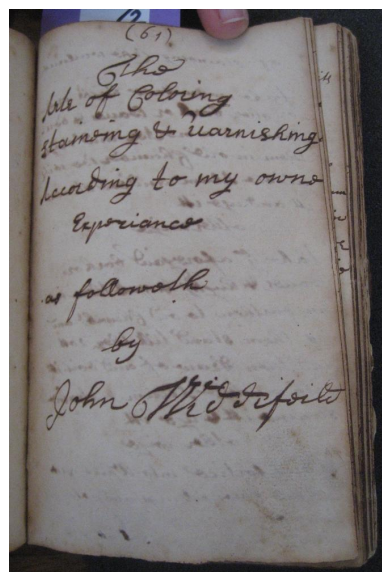 (61)
The
Arte of Coloring
staineing & Varnishing
According to my owne
Experiance
as followeth
by
John Widdifeild